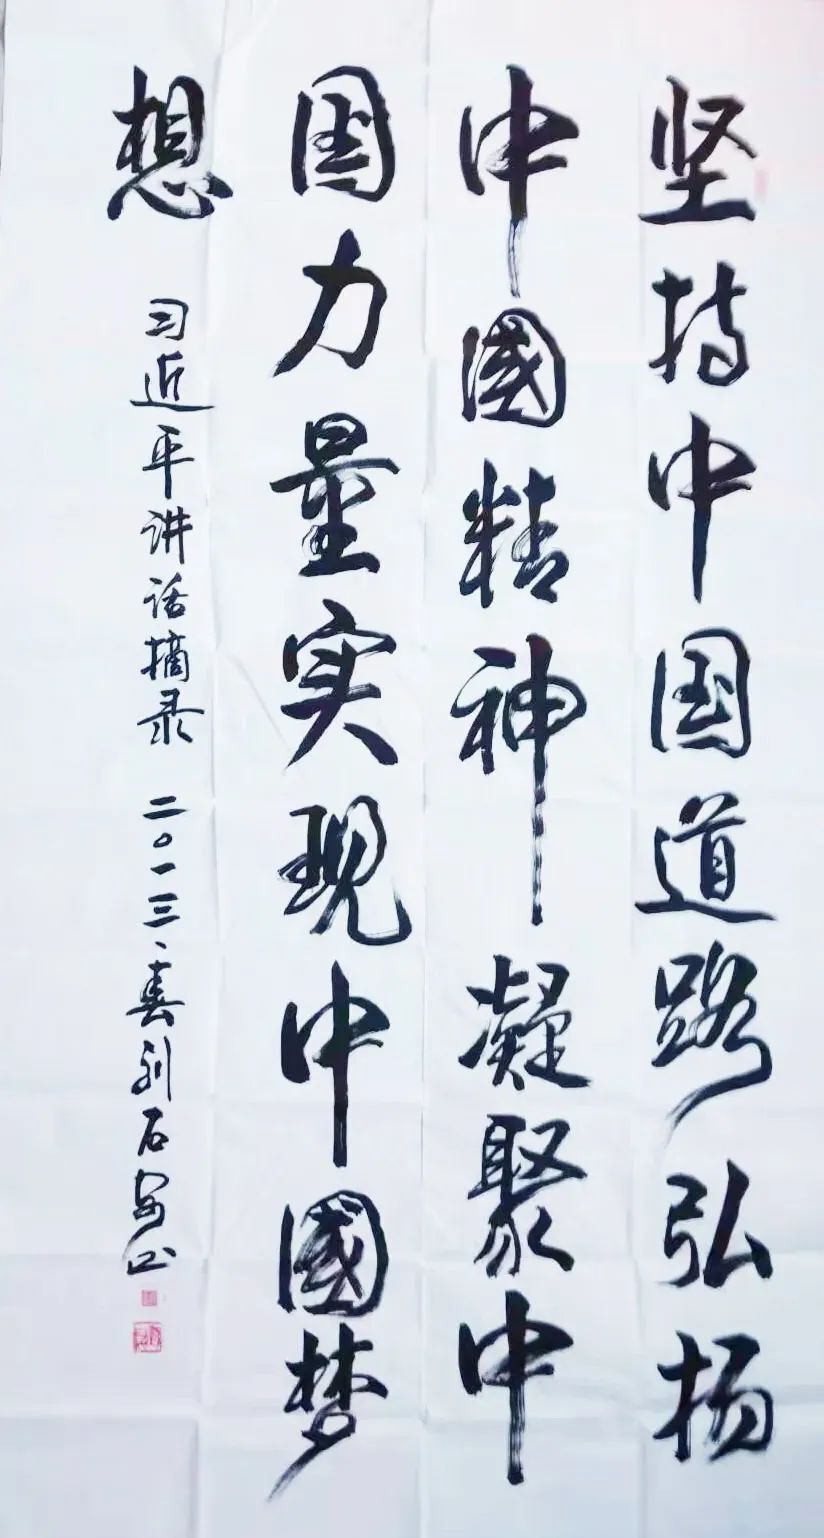 坚持中国道路弘扬
中國精神凝聚中
国力量实现中國梦
想
习近平讲话摘录 二〇一三、春刘石安山